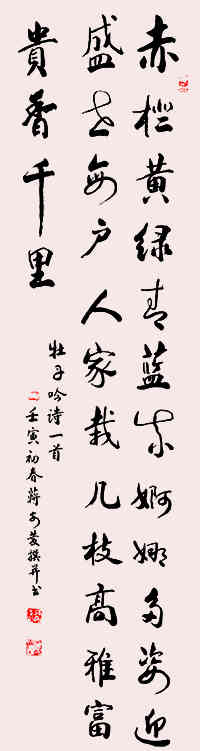 赤橙黄緑青藍紫婀娜多姿迎
盛世每户人家栽几枝高雅富
貴香千里
牡丹吟诗一首
壬寅初春蔣撰并书